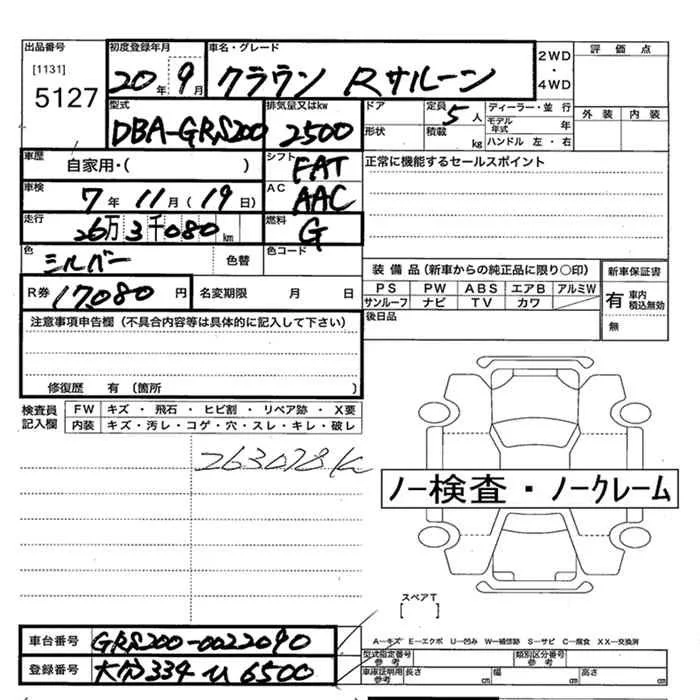 出品番号 初度登録年月 車名・グレード 評価点
[1131]
5127 20年 9月 クラウン Rサルーン 2WD・4WD
型式 排気量又はkw ドア 定員 5人 ディーラー・並行 外装 内装
DBA-GRS200 2500 形状 積載 kg モデル年式 年
ハンドル 左・右
車歴 自家用・( ) シフト FAT 正常に機能するセールスポイント
車検 7年 11月(19日) AC AAC
走行 26万3千080km 燃料 G
色 シルバー 色替 色コード
装備品(新車からの純正品に限り○印) 新車保証書
R券 17,080円 名変期限 月 日 PS PW ABS エアB アルミW 有 車内 積込無効
サンルーフ ナビ TV カワ
注意事項申告欄(不具合内容等は具体的に記入して下さい) 後日品 無
修復歴 有(箇所 )
検査員記入欄 FW キズ・飛石・ヒビ割・リペア跡・X要
内装 キズ・汚レ・コゲ・穴・スレ・キレ・破レ
263078K
ノー検査・ノークレーム
スペアT
[ ]
車台番号 GRS200-0022090 A―キズ E―エクボ U―凹み W―補修跡 S―サビ C―腐食 XX―交換済
登録番号 大分334 6500 型式指定番号 参考 類別区分番号 参考
車庫証明用 参考 長さ cm 幅 cm 高さ cm